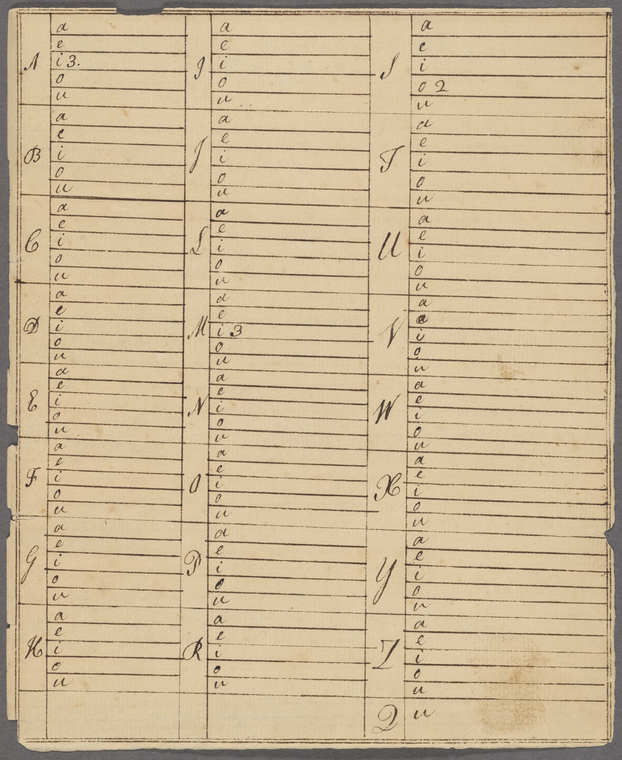 A
a
e
i 3.
o
u
B
a
e
i
o
u
C
a
e
i
o
u
D
a
e
i
o
u
E
a
e
i
o
u
F
a
e
i
o
u
G
a
e
i
o
u
H
a
e
i
o
u
I
a
e
i
o
u
J
a
e
i
o
u
L
a
e
i
o
u
M
a
e
i 3
o
u
N
a
e
i
o
u
O
a
e
i
o
u
P
a
e
i
o
u
R
a
e
i
o
u
S
a
e
i
o 2
u
T
a
e
i
o
u
U
a
e
i
o
u
V
a
e
i
o
u
W
a
e
i
o
u
X
a
e
i
o
u
Y
a
e
i
o
u
Z
a
e
i
o
u
Q
u